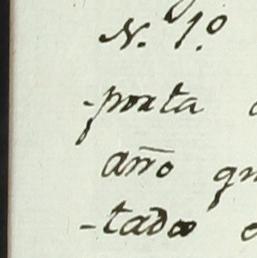 N. 1.º
-porta
año
-tado